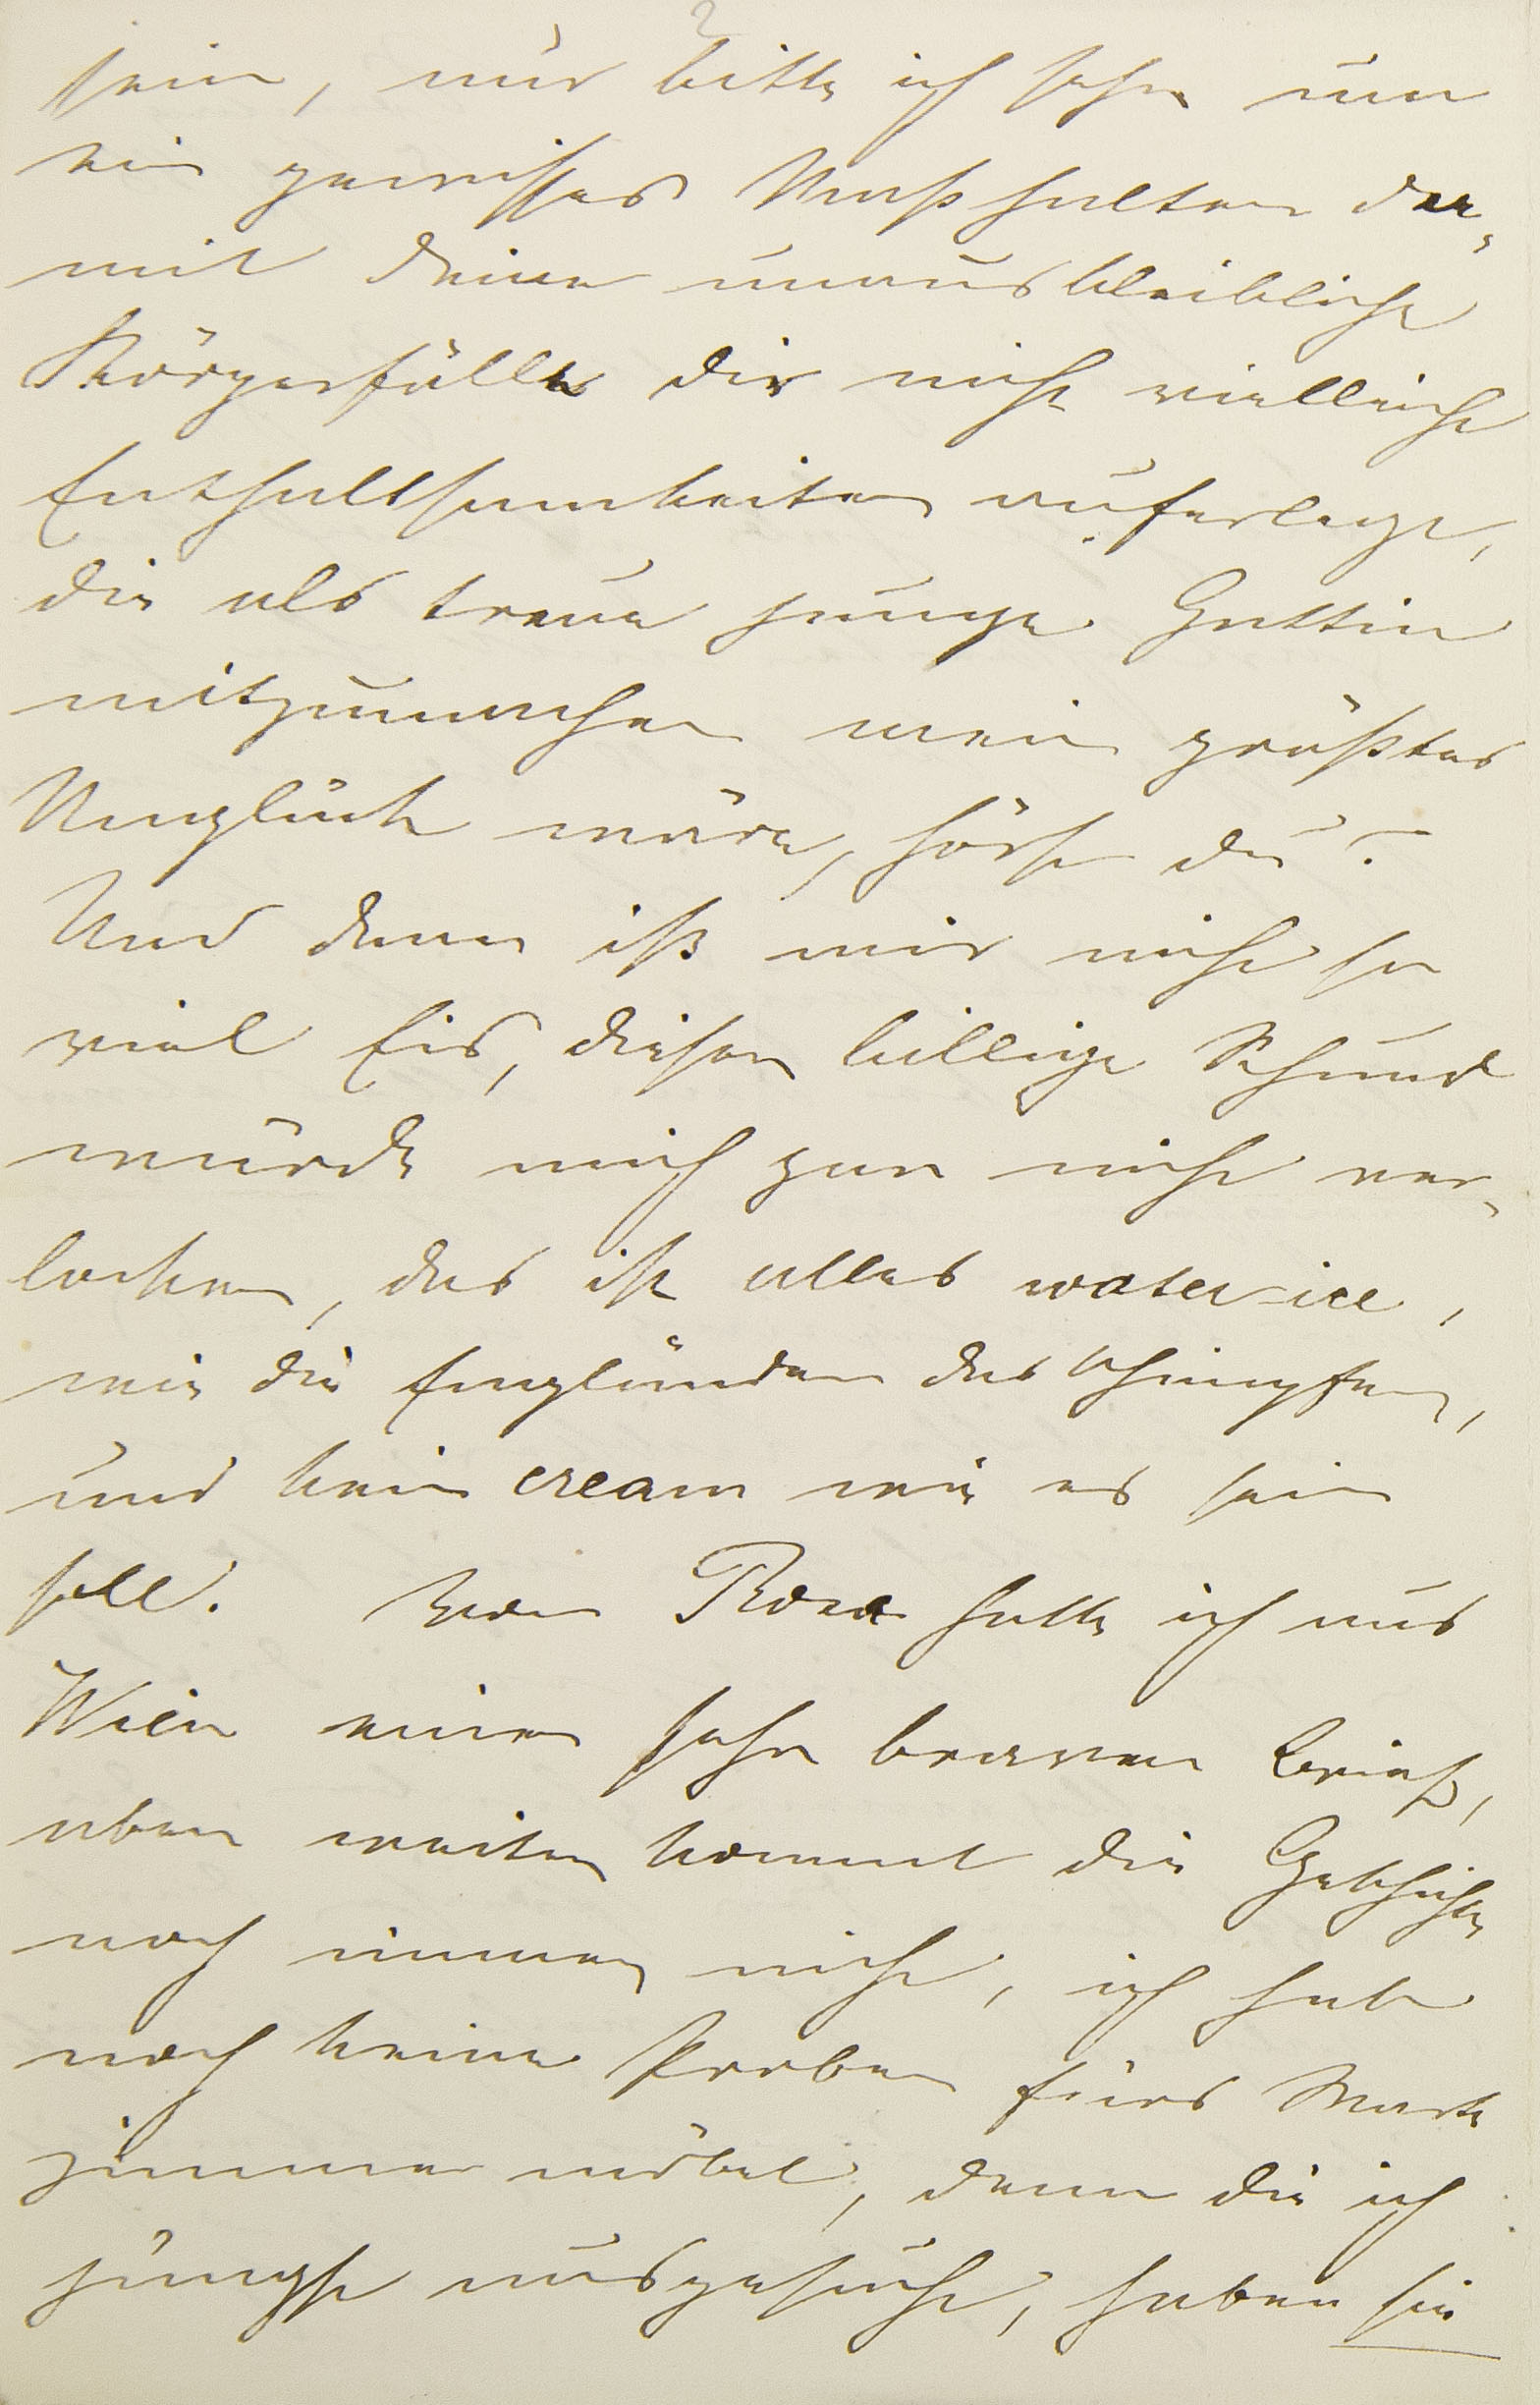 sein, nur bitte ich sehr um
ein gewisses Maßhalten da-
mit deine unausbleibliche
Körperfülle dir nicht vielleicht
Enthaltsamkeiten auferlege,
die als treue junge Gattin
mitzumachen mein größtes
Unglück wäre, hörst du?
Und dann iß mir nicht so
viel Eis, dieser billige Schund
würde mich gar nicht ver-
locken, das ist alles water-ice,
wie die Engländer das schimpfen,
und kein cream wie es sein
soll. Von Rosa hatte ich aus
Wien einen sehr braven Brief,
aber weiter kommt die Geschichte
noch immer nicht, ich hab
noch keine Proben fürs
zimmer möbel, denn die ich
jüngst ausgesucht, haben sie